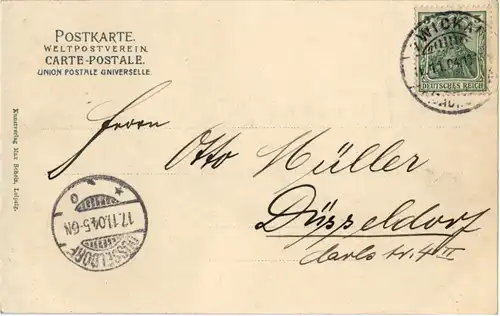 POSTKARTE.
WELTPOSTVEREIN.
CARTE-POSTALE.
UNION POSTALE UNIVERSELLE.
DEUTSCHES REICH
Herrn
Otto Müller
Düsseldorf
Carls str. 4 II
DÜSSELDORF
17.11.04.5-6N
Kunstverlag Max Leipzig.